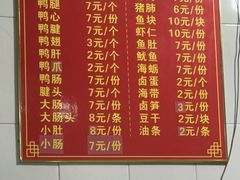 鸭腿 7元/个
鸭心 7元/份
鸭腱 7元/个
鸭翅 3元/个
鸭肝 2元/个
鸭爪 2元/个
鸭肠 7元/份
腱头 7元/个
大肠 7元/份
大肠头 8元/条
小肚 8元/份
小肠 7元/份
猪肺 6元/份
鱼块 10元/块
虾仁 10元/份
鱼肚 7元/份
鱿鱼 7元/份
海蛎 7元/份
卤蛋 2元/个
海带 2元/份
卤笋 3元/份
豆干 2元/块
油条 2元/条